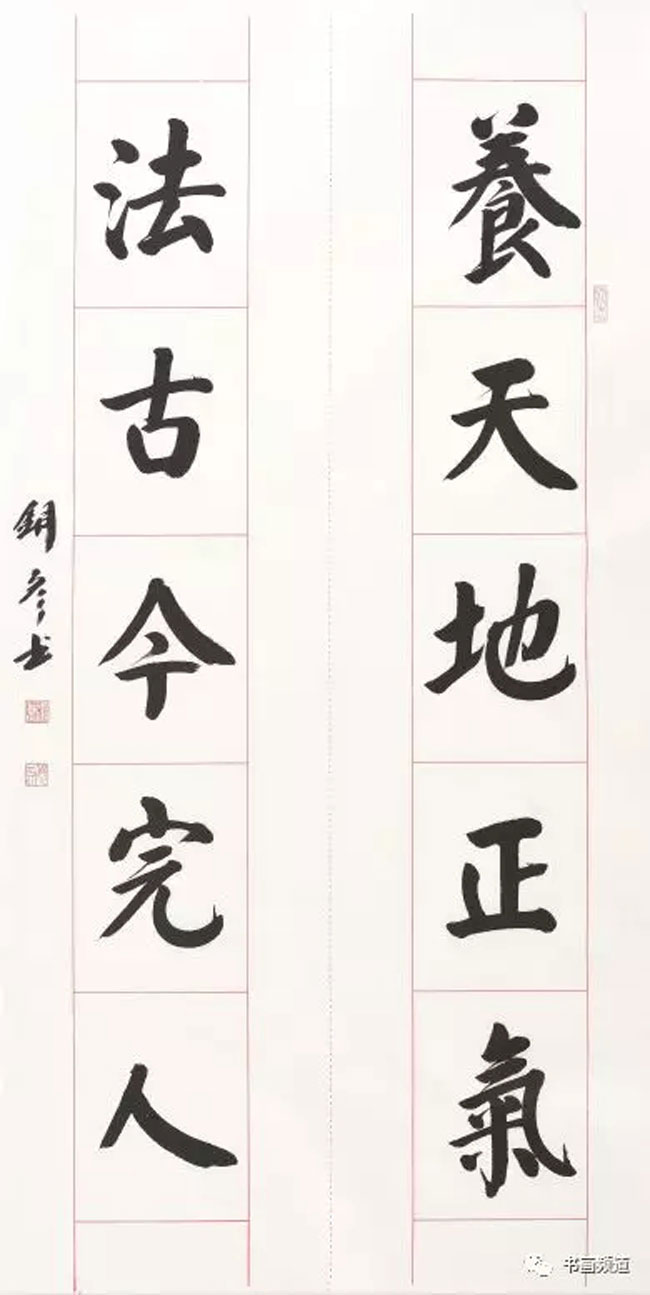 養天地正氣
法古今完人
书画频道